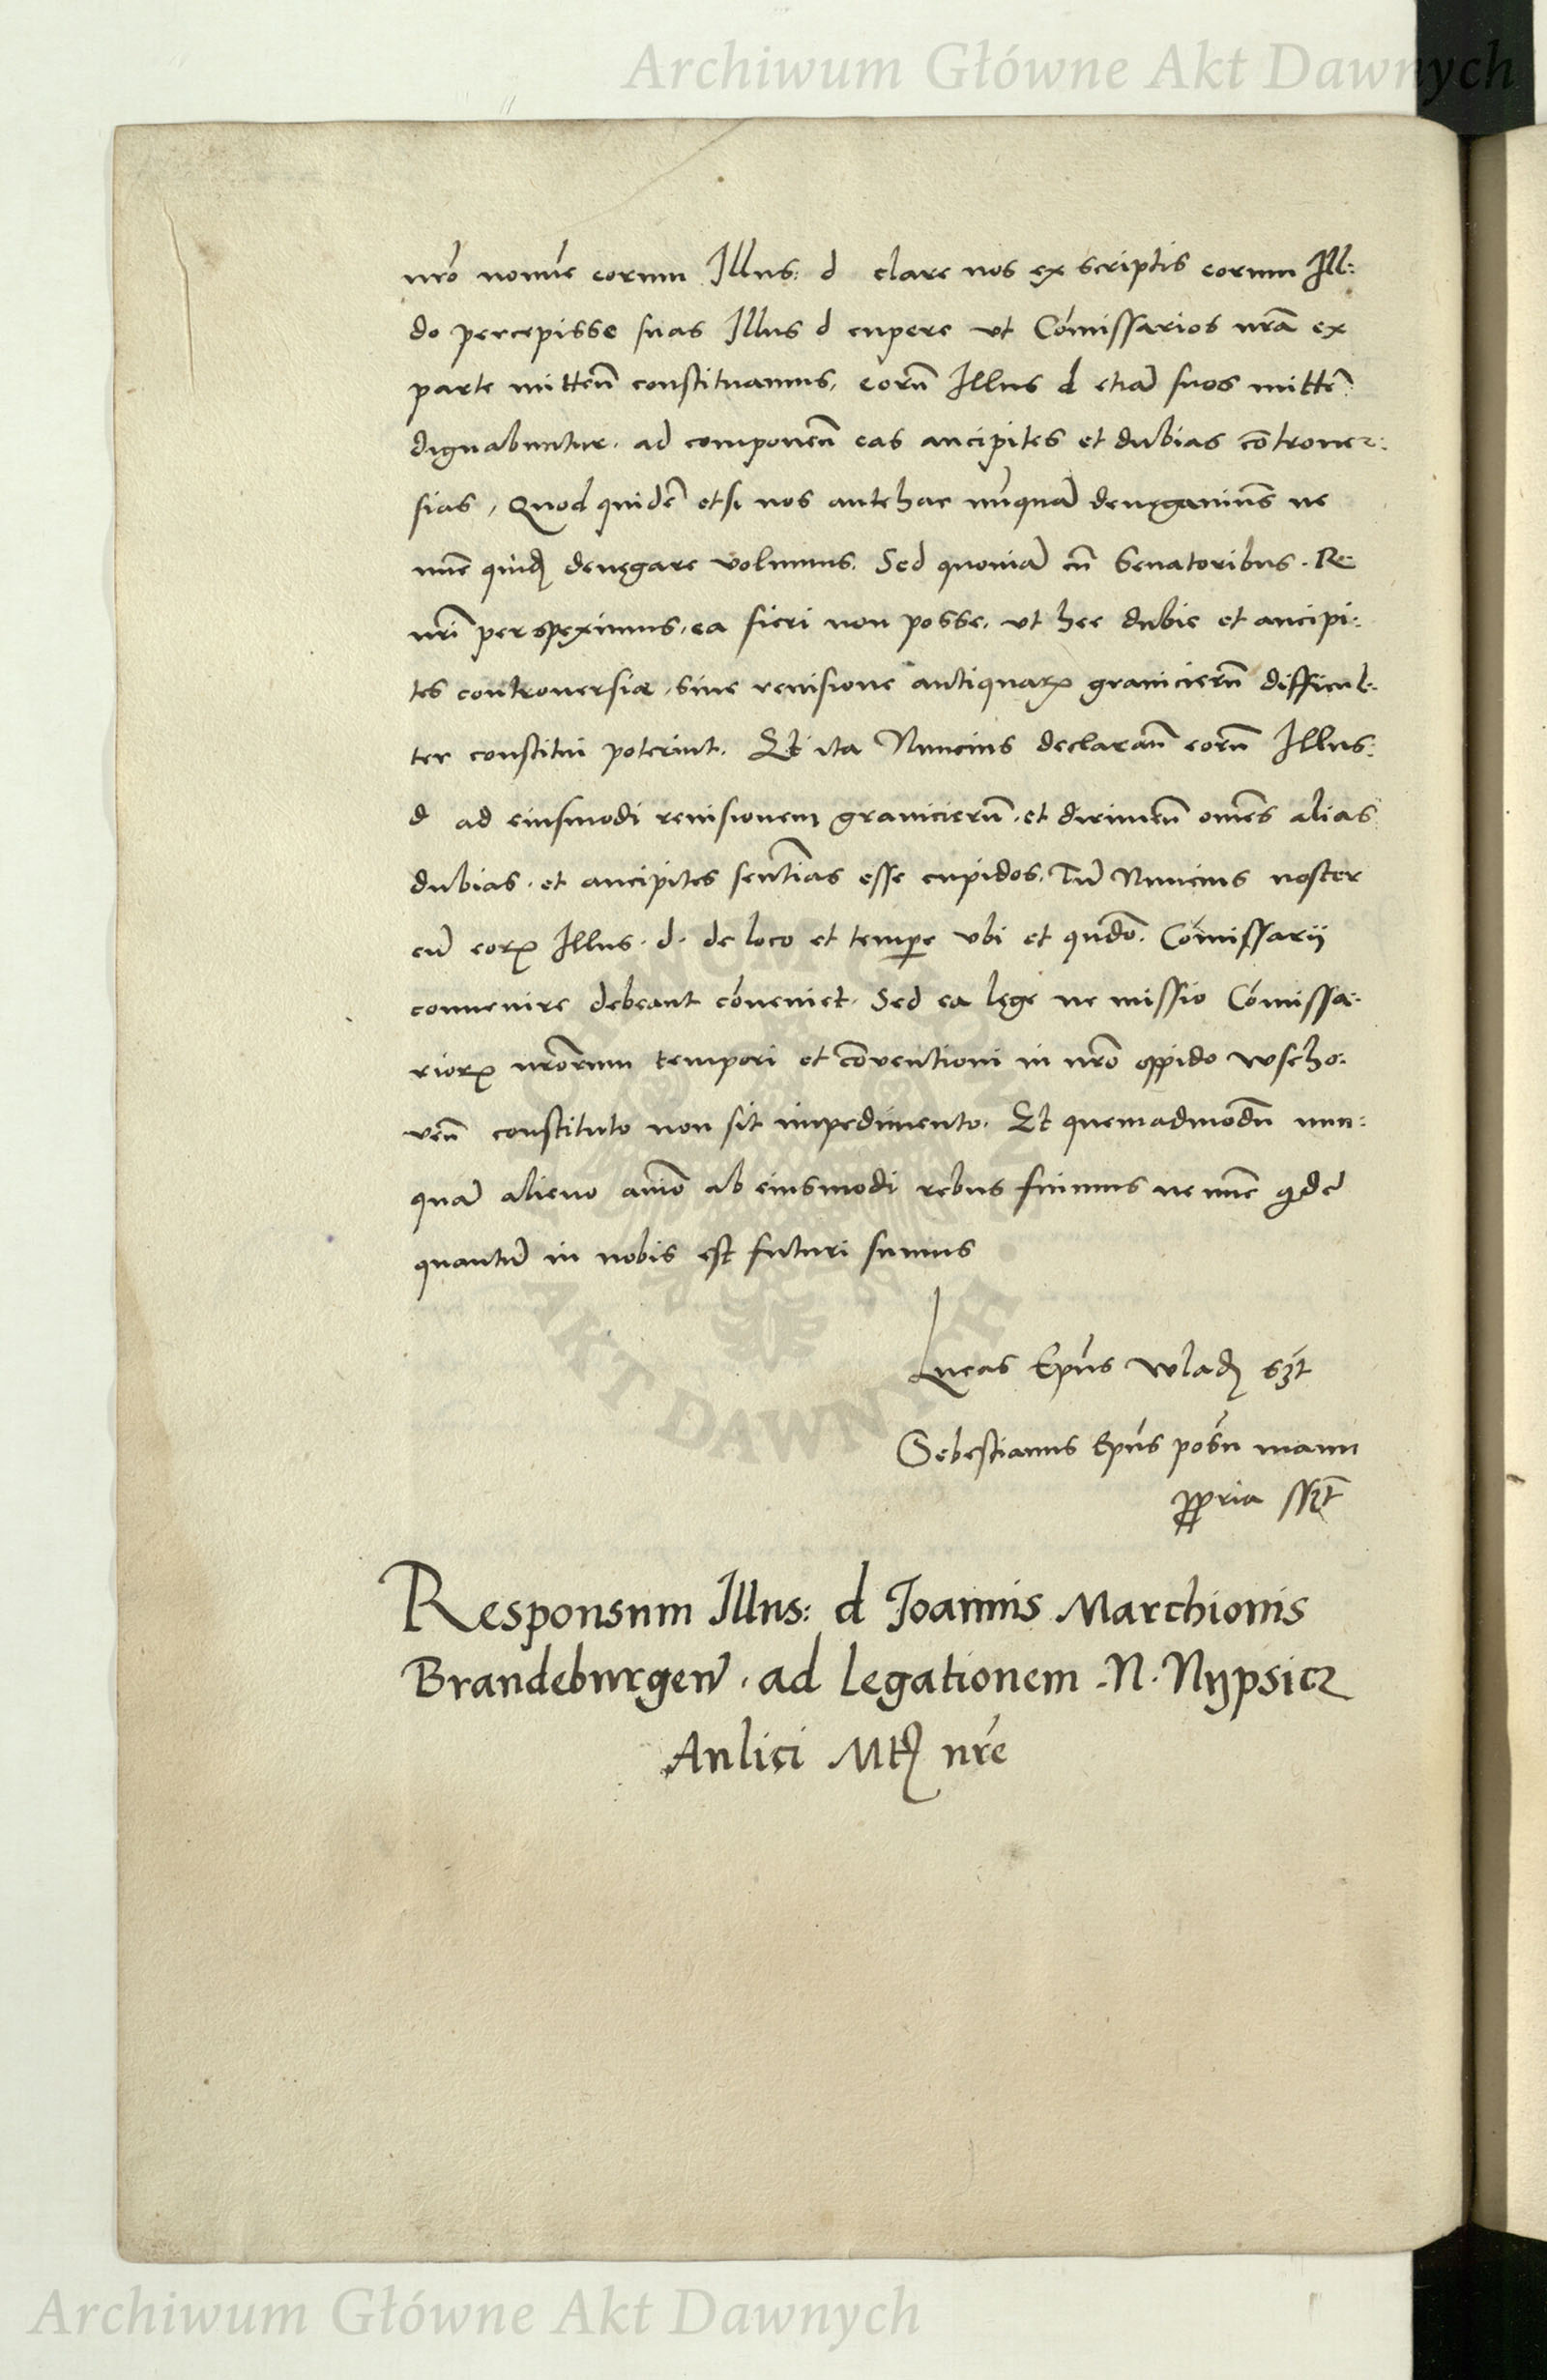 Archiwum Główne Akt Dawnych
nr̃o nomĩe eorum Illus: d clare nos ex scriptis eorum Ill:
do percepisse suas Illus d cupere vt Com̃issarios nrã ex
parte mitteñ constituamus, eorũ Illus d etiã suos mittẽ:
dignabuntur. ad componeñ eas ancipites et dubias cõtrouer:
sias, Quod quidẽ etsi nos antehac nũquã denęgauim̃s ne
nũc quidẽ denęgare volumus. Sed quoniã cũ Senatoribus. Re
nr̃i perspeximus, ea fieri non posse, vt hec dubie et ancipi:
tes controuersiæ, sine reuisione antiquarꝝ granicierũ difficul:
ter constitui poterint. Et ita Nuncius declarañ eorũ Illus:
d ad eiusmodi reuisionem granicierũ, et dirimeñ om̃es alias
dubias, et ancipites sentẽtias esse cupidos. Tũ Nuncius noster
cũ eorꝝ Illus. d. de loco et temꝑe vbi et qũdo. Com̃issarij
conuenire debeant cõueniet. Sed ea lęge ne missio Com̃issa:
riorꝝ nr̃orum tempori et cõventioni in nr̃o oppido wscho:
veñ constituto non sit impedimento. Et quemadmodũ nun:
quã alieno aĩo ab eiusmodi rebus fuimus ne nũc qͥdẽ
quantũ in nobis est futuri sumus
Lucas Epũs wladꝭ sȝt
Sebestianus Epũs posñ manu
ꝓpria ssȝt
Responsum Illus: d Joannis Marchionis
Brandeburgeñ. ad legationem N. Nypsicz
Aulici Mtꝭ nr̃e
ARCHIWUM GŁÓWNE AKT DAWNYCH
Archiwum Główne Akt Dawnych